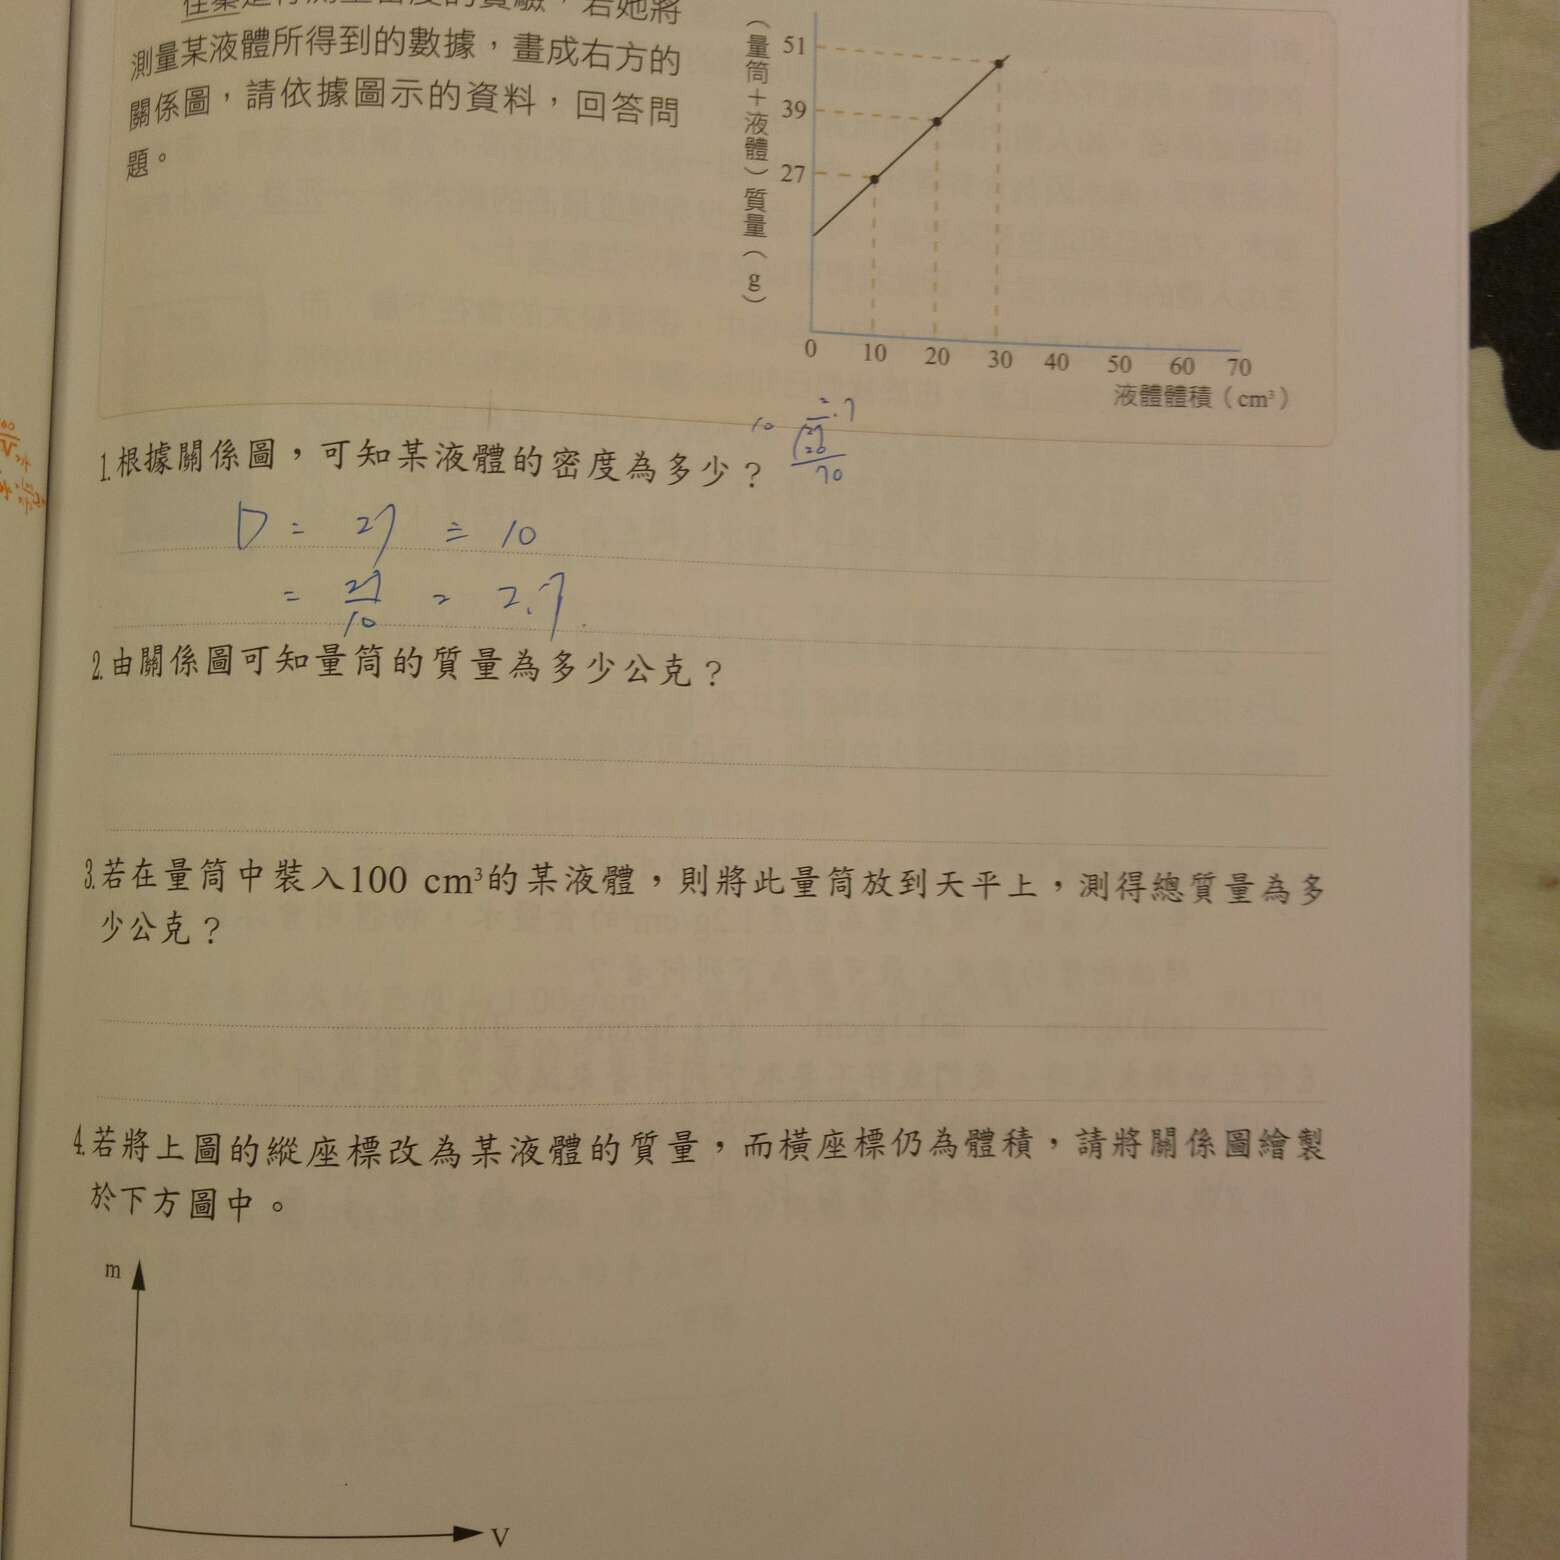 測量某液體所得到的數據，畫成右方的
關係圖，請依據圖示的資料，回答問
題。
（量筒＋液體）質量（g）
51
39
27
0 10 20 30 40 50 60 70
液體體積（cm³）
2.7
10 27
20
70
1.根據關係圖，可知某液體的密度為多少？
D = 27 ÷ 10
= 27/10 = 2.7
2.由關係圖可知量筒的質量為多少公克？
3.若在量筒中裝入100 cm³的某液體，則將此量筒放到天平上，測得總質量為多
少公克？
4.若將上圖的縱座標改為某液體的質量，而橫座標仍為體積，請將關係圖繪製
於下方圖中。
m
V